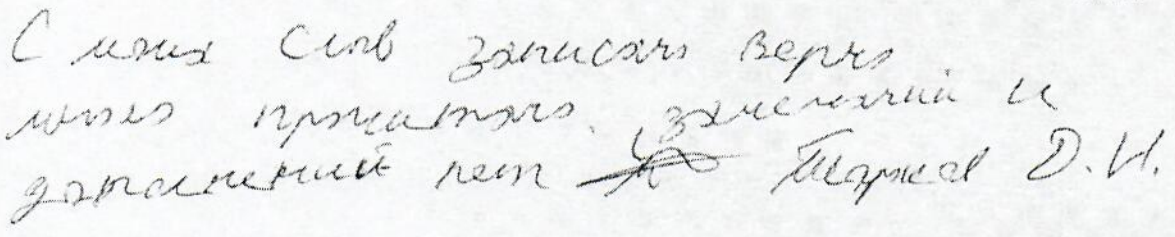 С моих слов записано верно
мною прочитано. замечаний и
дополнений нет Д.И.